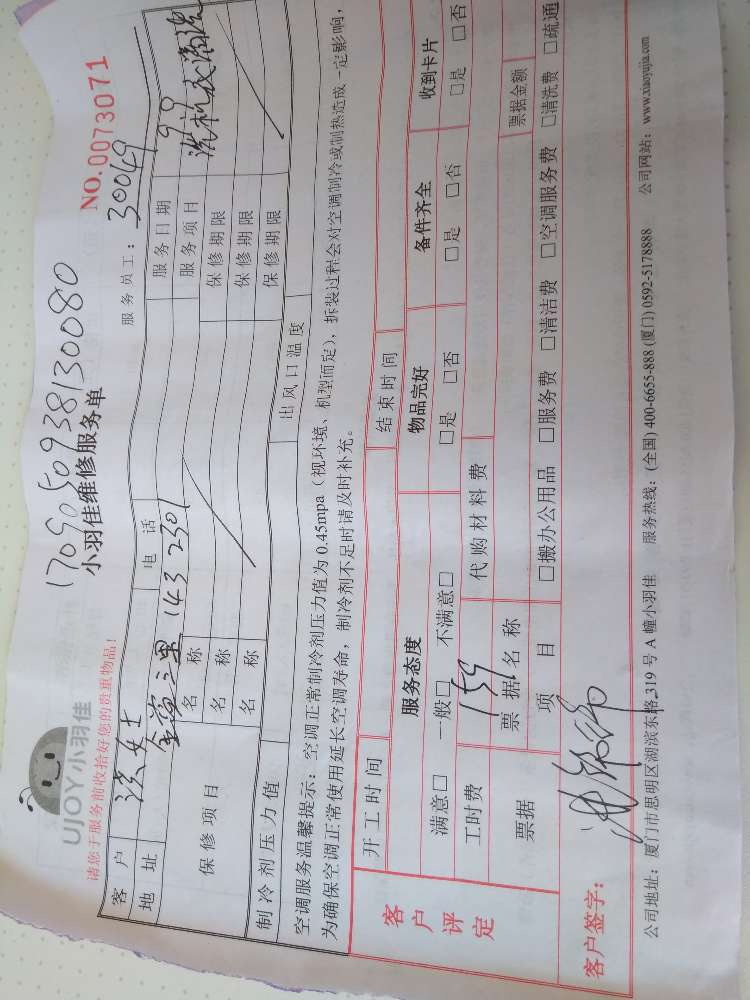 17090509938130080
UJOY小羽佳
小羽佳维修服务单
NO.0073071
请您于服务前收拾好您的贵重物品！
服务员工：30049
客 户
女士
电 话
服务日期
9.9
地 址
金尚三里 143 2301
服务项目
洗衣机清洗
保修项目
名 称
保修期限
名 称
保修期限
名 称
保修期限
制冷剂压力值
出风口温度
空调服务温馨提示：空调正常制冷剂压力值为 0.45mpa（视环境、机型而定），拆装过程会对空调制冷或制热造成一定影响，
为确保空调正常使用延长空调寿命，制冷剂不足时请及时补充。
客户评定
开工时间
结束时间
服务态度
物品完好
备件齐全
收到卡片
满意□ 一般□ 不满意□
□是 □否
□是 □否
□是 □否
工时费
159
代购材料费
票据
票据名称
票据金额
项 目
□搬办公用品 □服务费 □清洁费 □空调服务费 □清洗费 □疏通
客户签字：
公司地址：厦门市思明区湖滨东路 319 号 A 幢小羽佳 服务热线：(全国) 400-6655-888 (厦门) 0592-5178888 公司网站：www.xiaoyujia.com